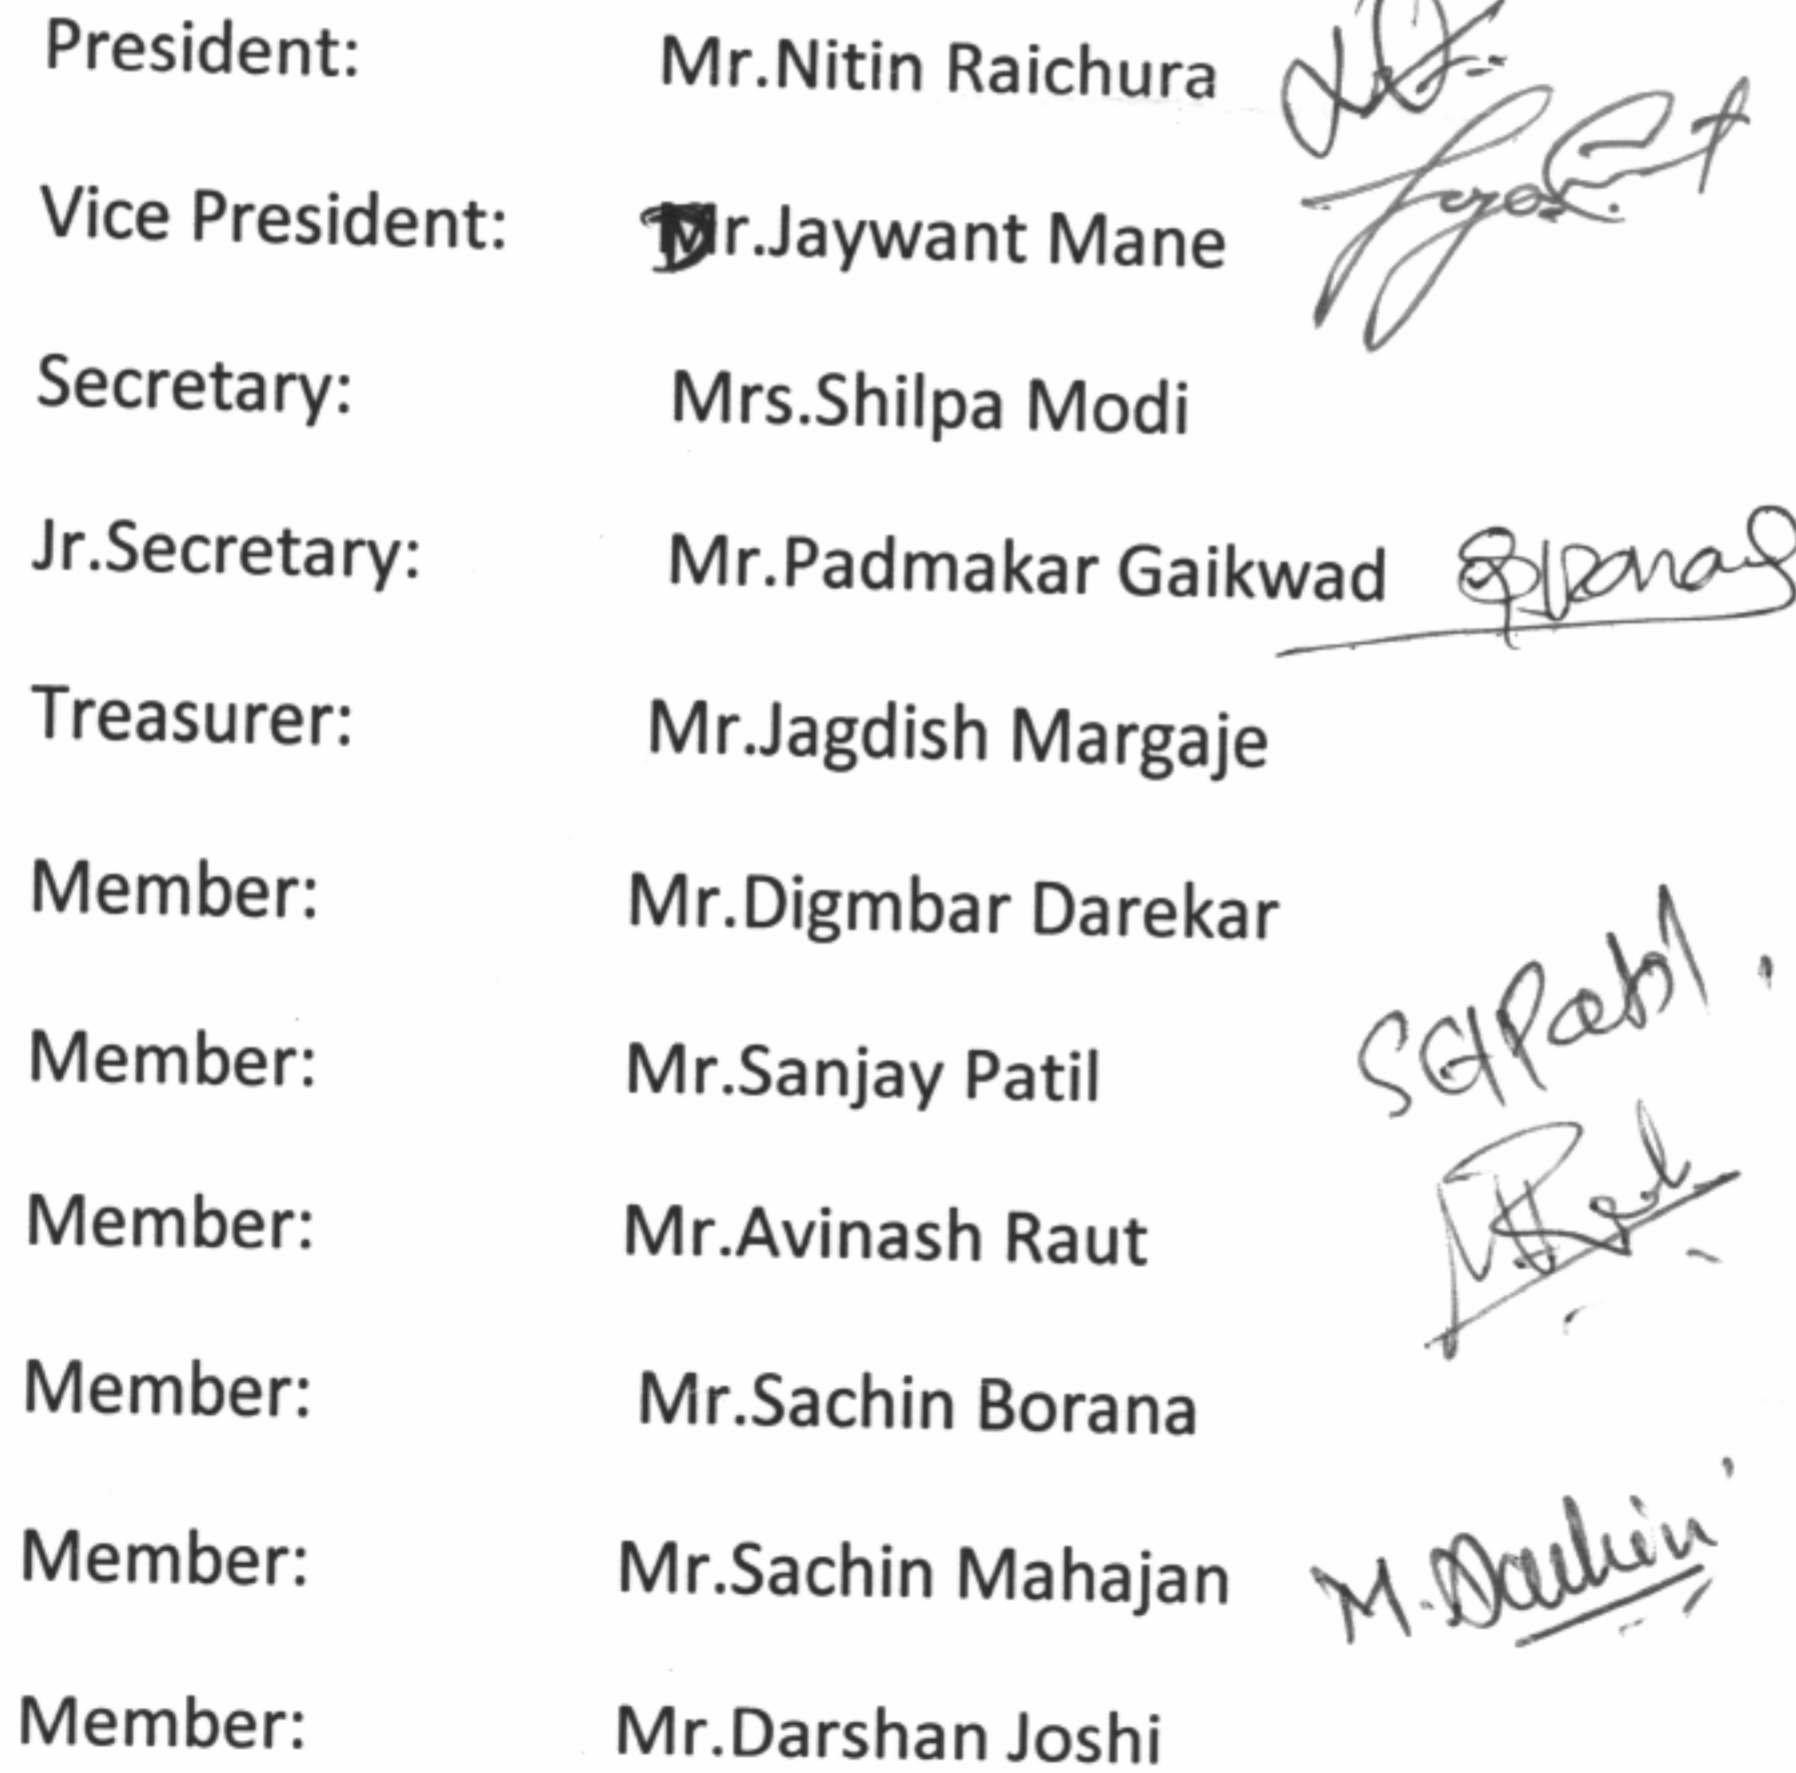 President: Mr.Nitin Raichura
Vice President: Dr.Jaywant Mane
Secretary: Mrs.Shilpa Modi
Jr.Secretary: Mr.Padmakar Gaikwad
Treasurer: Mr.Jagdish Margaje
Member: Mr.Digmbar Darekar
Member: Mr.Sanjay Patil SGPatil.
Member: Mr.Avinash Raut
Member: Mr.Sachin Borana
Member: Mr.Sachin Mahajan
Member: Mr.Darshan Joshi